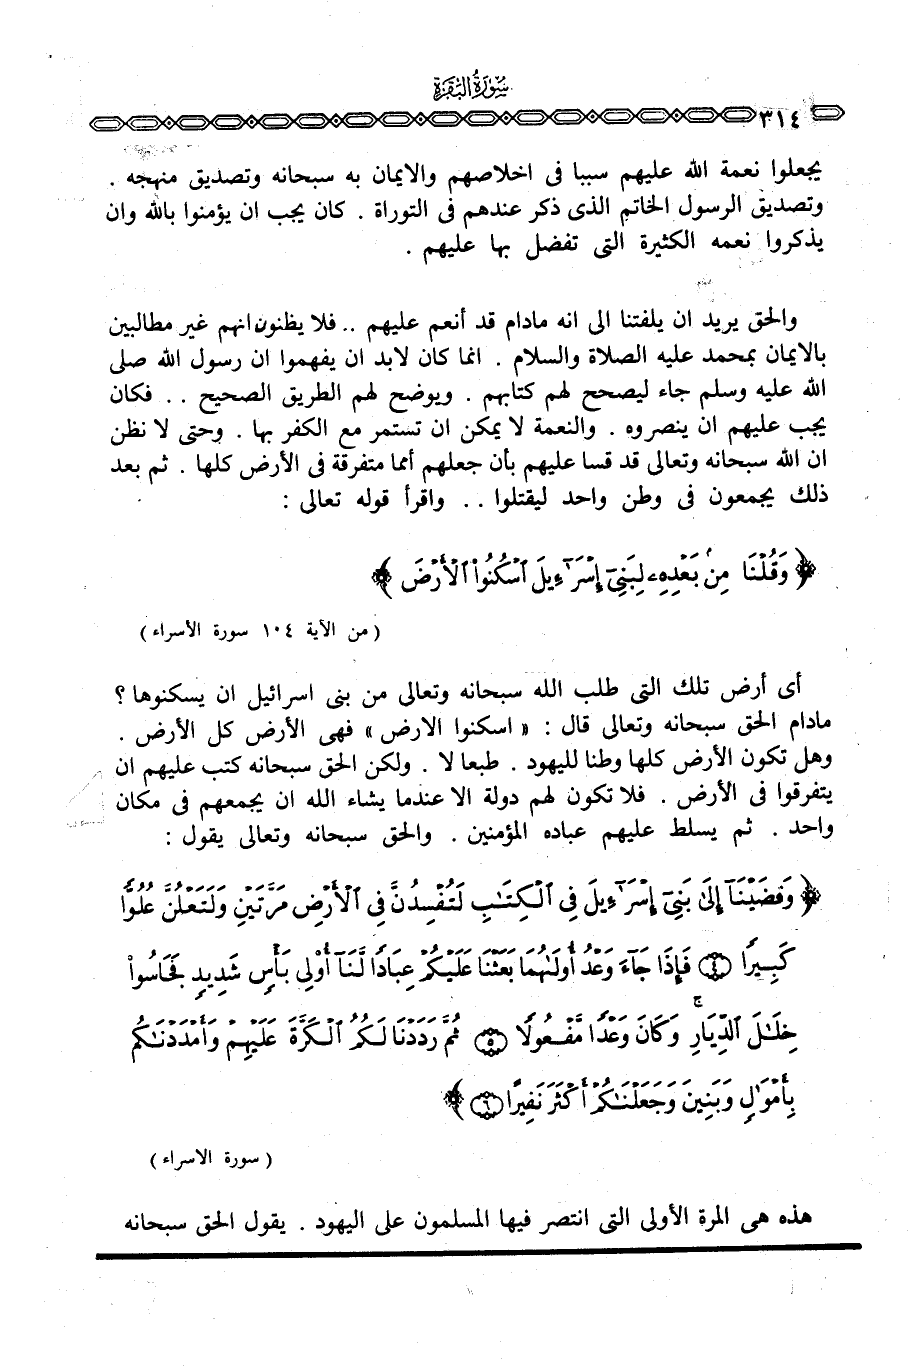 سورة البقرة
٣١٤
يجعلوا نعمة الله عليهم سببا فى اخلاصهم والايمان به سبحانه وتصديق منهجه .
وتصديق الرسول الخاتم الذى ذكر عندهم فى التوراة . كان يجب ان يؤمنوا بالله وان
يذكروا نعمه الكثيرة التى تفضل بها عليهم .
والحق يريد ان يلفتنا الى انه مادام قد أنعم عليهم .. فلا يظنون انهم غير مطالبين
بالايمان بمحمد عليه الصلاة والسلام . انما كان لابد ان يفهموا ان رسول الله صلى
الله عليه وسلم جاء ليصحح لهم كتابهم . ويوضح لهم الطريق الصحيح .. فكان
يجب عليهم ان ينصروه . والنعمة لا يمكن ان تستمر مع الكفر بها . وحتى لا نظن
ان الله سبحانه وتعالى قد قسا عليهم بأن جعلهم أمما متفرقة فى الأرض كلها . ثم بعد
ذلك يجمعون فى وطن واحد ليقتلوا .. واقرأ قوله تعالى :
﴿ وَقُلْنَا مِنۢ بَعْدِهِۦ لِبَنِىٓ إِسْرَٰٓءِيلَ ٱسْكُنُوا۟ ٱلْأَرْضَ ﴾
( من الآية ١٠٤ سورة الأسراء )
أى أرض تلك التى طلب الله سبحانه وتعالى من بنى اسرائيل ان يسكنوها ؟
مادام الحق سبحانه وتعالى قال : « اسكنوا الارض » فهى الأرض كل الأرض .
وهل تكون الأرض كلها وطنا لليهود . طبعا لا . ولكن الحق سبحانه كتب عليهم ان
يتفرقوا فى الأرض . فلا تكون لهم دولة الا عندما يشاء الله ان يجمعهم فى مكان
واحد . ثم يسلط عليهم عباده المؤمنين . والحق سبحانه وتعالى يقول :
﴿ وَقَضَيْنَآ إِلَىٰ بَنِىٓ إِسْرَٰٓءِيلَ فِى ٱلْكِتَٰبِ لَتُفْسِدُنَّ فِى ٱلْأَرْضِ مَرَّتَيْنِ وَلَتَعْلُنَّ عُلُوًّا
كَبِيرًا ٤ فَإِذَا جَآءَ وَعْدُ أُولَىٰهُمَا بَعَثْنَا عَلَيْكُمْ عِبَادًا لَّنَآ أُو۟لِى بَأْسٍ شَدِيدٍ فَجَاسُوا۟
خِلَٰلَ ٱلدِّيَارِ ۚ وَكَانَ وَعْدًا مَّفْعُولًا ٥ ثُمَّ رَدَدْنَا لَكُمُ ٱلْكَرَّةَ عَلَيْهِمْ وَأَمْدَدْنَٰكُم
بِأَمْوَٰلٍ وَبَنِينَ وَجَعَلْنَٰكُمْ أَكْثَرَ نَفِيرًا ٦ ﴾
( سورة الاسراء )
هذه هى المرة الأولى التى انتصر فيها المسلمون على اليهود . يقول الحق سبحانه